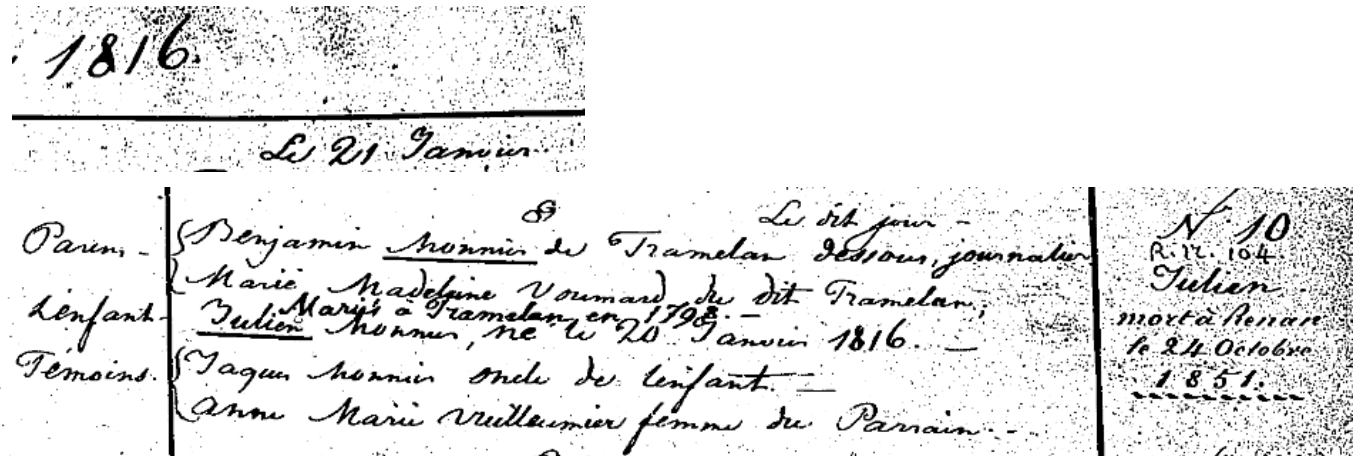 1816.
Le 21 Janvier.
8
Le dit jour -
Parens - Benjamin Monnier de Tramelan dessous, journalier
Marie Madelaine Voumard du dit Tramelan;
Mariés à Tramelan en 1798. -
L'enfant - Julien Monnier, né le 20 Janvier 1816. -
Témoins. Jaques Monnier oncle de l'enfant. -
Anne Marie Vuilleumier femme du Parrain. -
N° 10
R. 12. 104.
Julien
mort à Renan
le 24 Octobre
1851.